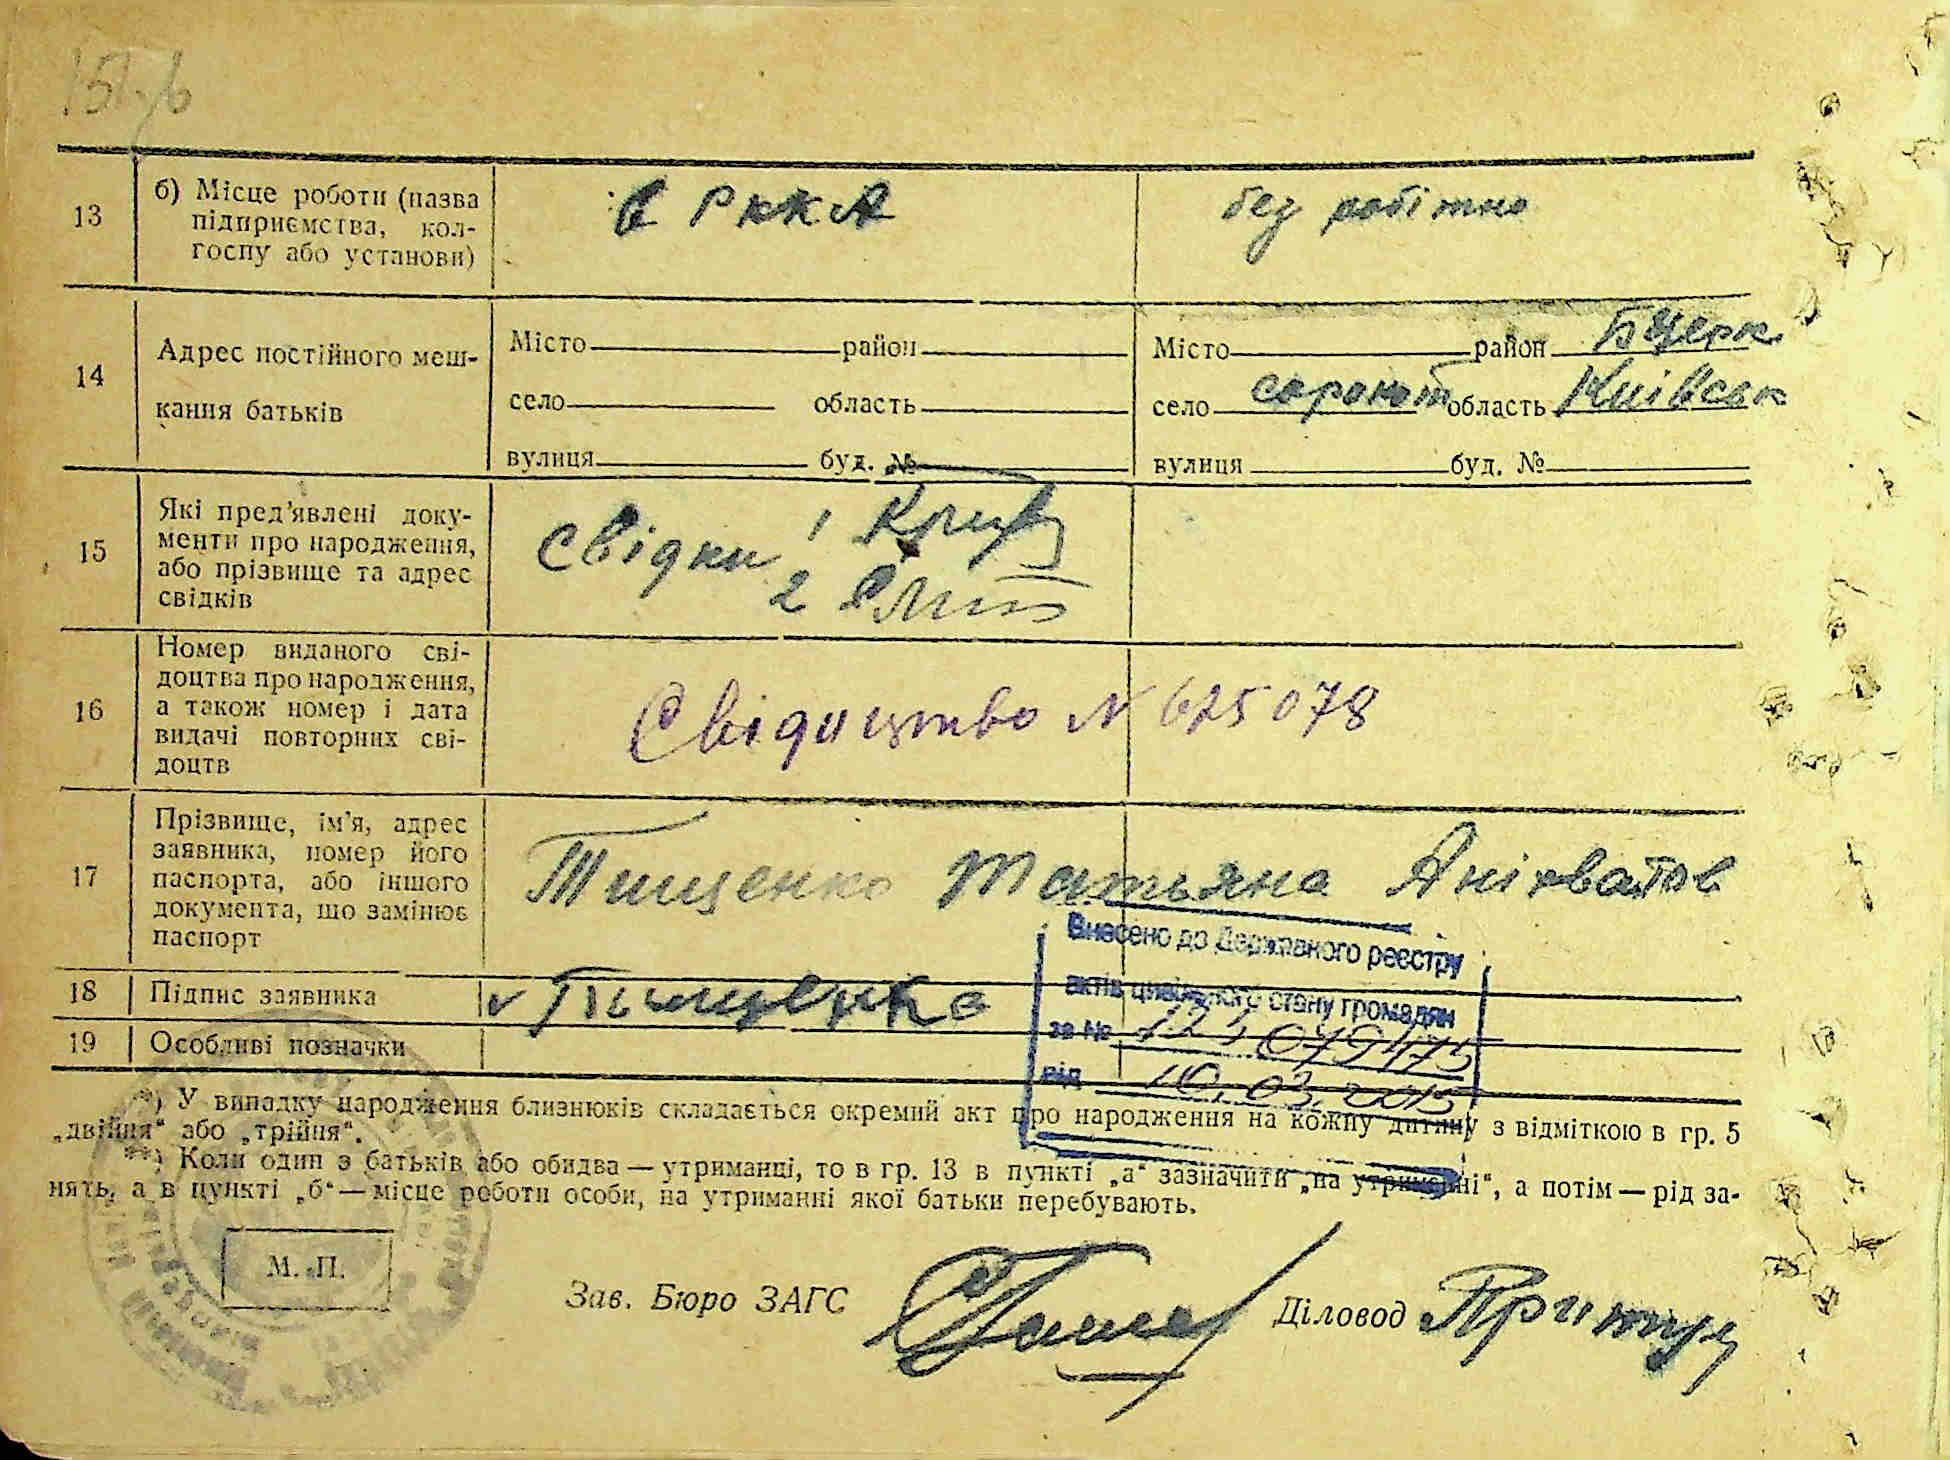 13 б) Місце роботи (назва в РККА без робітно
підприємства, кол-
госпу або установи)
14 Адрес постійного меш-
кання батьків
Місто район
село область
вулиця буд. №
Місто район Бцерк
село сорокот область Київськ
вулиця буд. №
15 Які пред'явлені доку-
менти про народження,
або прізвище та адрес
свідків
Свідки 1
2
16 Номер виданого сві-
доцтва про народження,
а також номер і дата
видачі повторних сві-
доцтв
Свідоцтво N 625078
17 Прізвище, ім'я, адрес
заявника, номер його
паспорта, або іншого
документа, що замінює
паспорт
Тищенко Татьяна
Внесено до Державного реєстру
актів цивільного стану громадян
за № 121 079475
від 10.03.2015
18 Підпис заявника Тищенко
19 Особливі позначки
*) У випадку народження близнюків складається окремий акт про народження на кожну дитину з відміткою в гр. 5
„двійня“ або „трійня“.
**) Коли один з батьків або обидва — утриманці, то в гр. 13 в пункті „а“ зазначити „на утриманні“, а потім — рід за-
нять, а в пункті „б“ — місце роботи особи, на утриманні якої батьки перебувають.
М. П.
Зав. Бюро ЗАГС Діловод